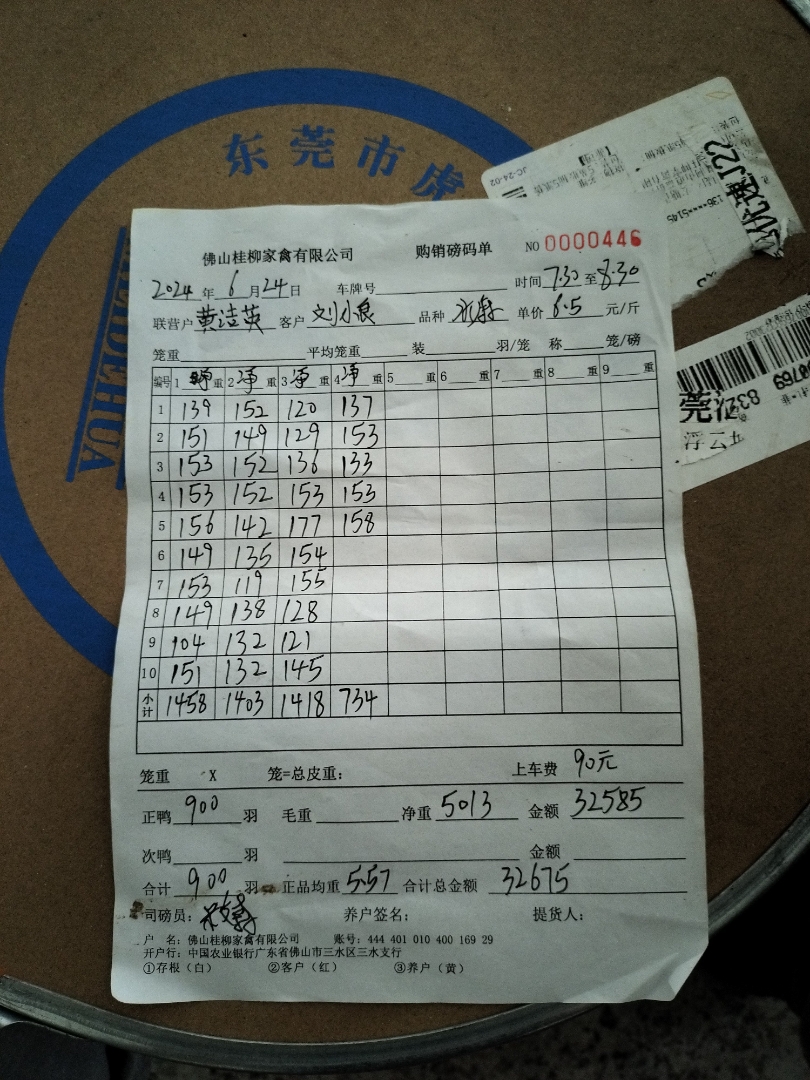 东莞市虎
JC-24-02
优速J22
136****5145
佛山桂柳家禽有限公司 购销磅码单 NO 0000446
2024年6月24日 车牌号 时间7:30至8:30
联营户 黄洁英 客户 刘小良 品种 单价 6.5 元/斤
笼重 平均笼重 装 羽/笼 称 笼/磅
编号 1 净重 2 净重 3 净重 4 净重 5 重 6 重 7 重 8 重 9 重
1 139 152 120 137
2 151 149 129 153
3 153 152 136 133
4 153 152 153 153
5 156 142 177 158
6 149 135 154
7 153 119 155
8 149 138 128
9 104 132 121
10 151 132 145
小计 1458 1403 1418 734
笼重 X 笼=总皮重: 上车费 90元
正鸭 900 羽 毛重 净重 5013 金额 32585
次鸭 羽 金额
合计 900 羽 正品均重 5.57 合计总金额 32675
司磅员: 养户签名: 提货人:
户 名: 佛山桂柳家禽有限公司 账号: 444 401 010 400 169 29
开户行: 中国农业银行广东省佛山市三水区三水支行
①存根(白) ②客户(红) ③养户(黄)
浮云五